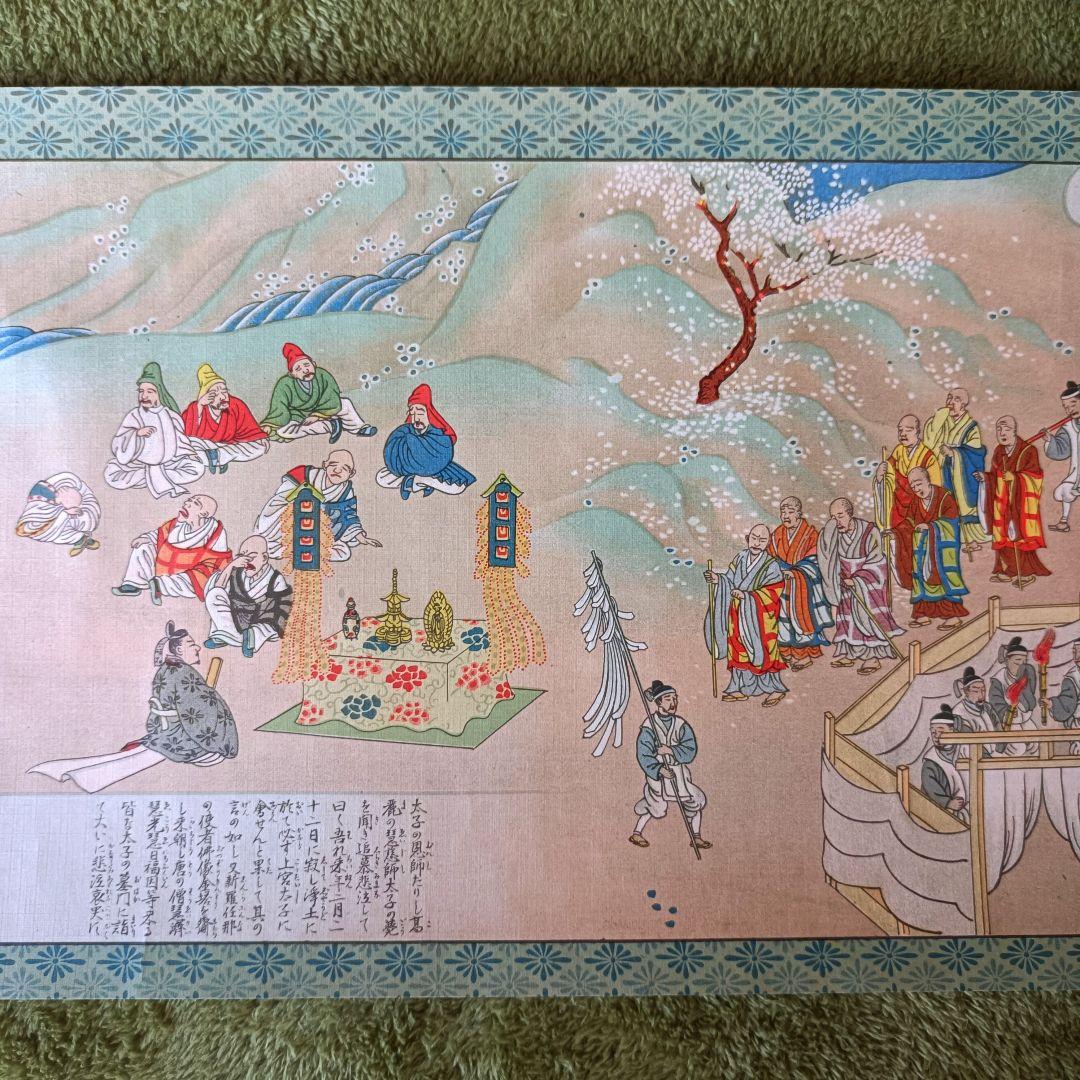 太子の恩師たりし高
麗の慧慈師太子の薨
を聞き追慕悲泣して
曰く吾れ来年二月二
十二日に寂し浄土に
於て必す上宮太子に
會せんと果して其の
言の如し又新羅任那
の使者佛像金塔を齎
し来朝し唐の僧慧濟
慧光慧日福因等来る
皆な太子の墓門に詣
て大いに悲泣哀哭す